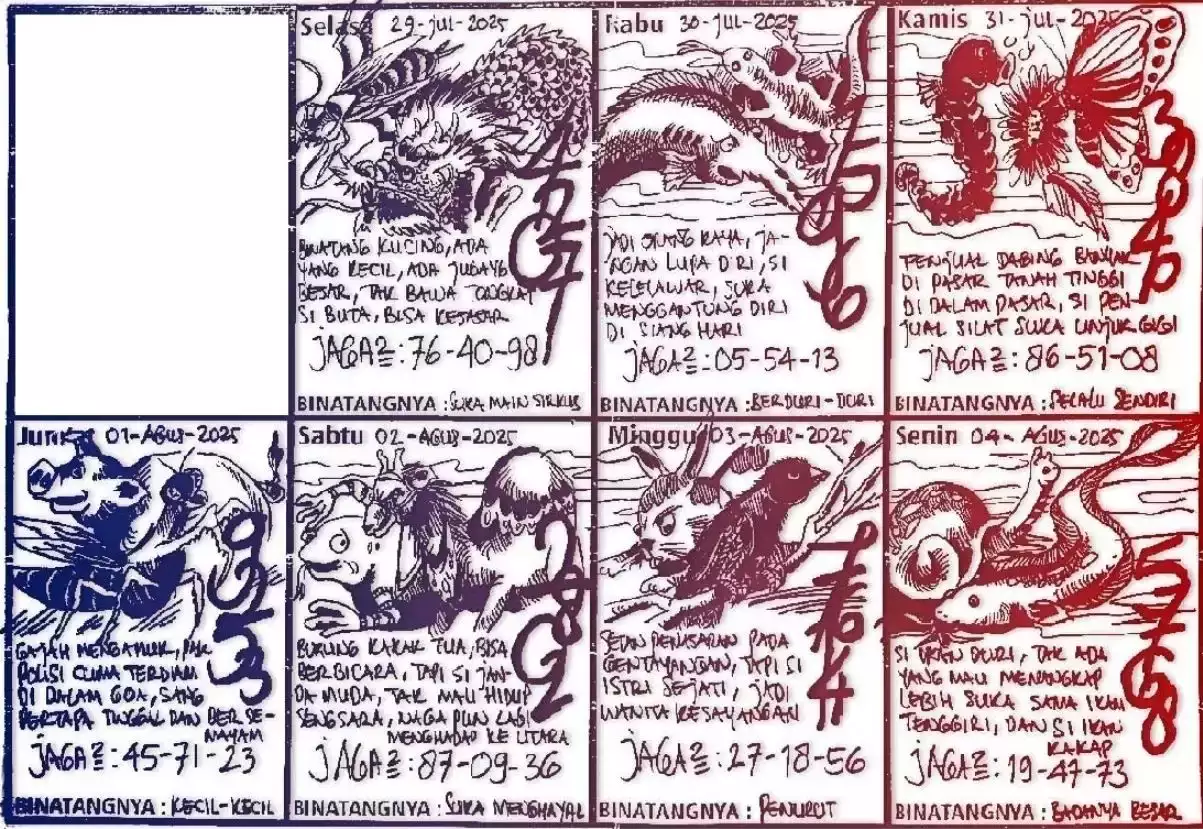 Selasa 29-JUL-2025
BINATANG KUCING, ADA
YANG KECIL, ADA JUGA YG
BESAR, TAK BAWA TONGKAT
SI BUTA, BISA KESASAR
JAGA2 : 76-40-98
BINATANGNYA : SUKA MAIN SIRKUS
Rabu 30-JUL-2025
JADI ORANG KAYA, JA-
NGAN LUPA DIRI, SI
KELELAWAR, SUKA
MENGGANTUNG DIRI
DI SIANG HARI
JAGA2 : 05-54-13
BINATANGNYA : BERDURI-DURI
Kamis 31-JUL-2025
PENJUAL DAGING BANYAK
DI PASAR TANAH TINGGI
DI DALAM PASAR, SI PEN-
JUAL SILAT SUKA UNJUK GIGI
JAGA2 : 86-51-08
BINATANGNYA : SELALU SENDIRI
Jumat 01-AGUS-2025
GAJAH MENGAMUK, PAK
POLISI CUMA TERDIAM
DI DALAM GOA, SANG
PERTAPA TINGGAL DAN BERSE-
MAYAM
JAGA2 : 45-71-23
BINATANGNYA : KECIL-KECIL
Sabtu 02-AGUS-2025
BURUNG KAKAK TUA, BISA
BERBICARA, TAPI SI JAN-
DA MUDA, TAK MAU HIDUP
SENGSARA, NAGA PUN LAGI
MENGHADAP KE UTARA
JAGA2 : 87-09-36
BINATANGNYA : SUKA MENGHAYAL
Minggu 03-AGUS-2025
SETAN PENASARAN PADA
GENTAYANGAN, TAPI SI
ISTRI SEJATI, JADI
WANITA KESAYANGAN
JAGA2 : 27-18-56
BINATANGNYA : PENURUT
Senin 04-AGUS-2025
SI IKAN DURI, TAK ADA
YANG MAU MENANGKAP
LEBIH SUKA SAMA IKAN
TENGGIRI, DAN SI IKAN
KAKAP
JAGA2 : 19-47-73
5768
BINATANGNYA : BADANNYA BESAR